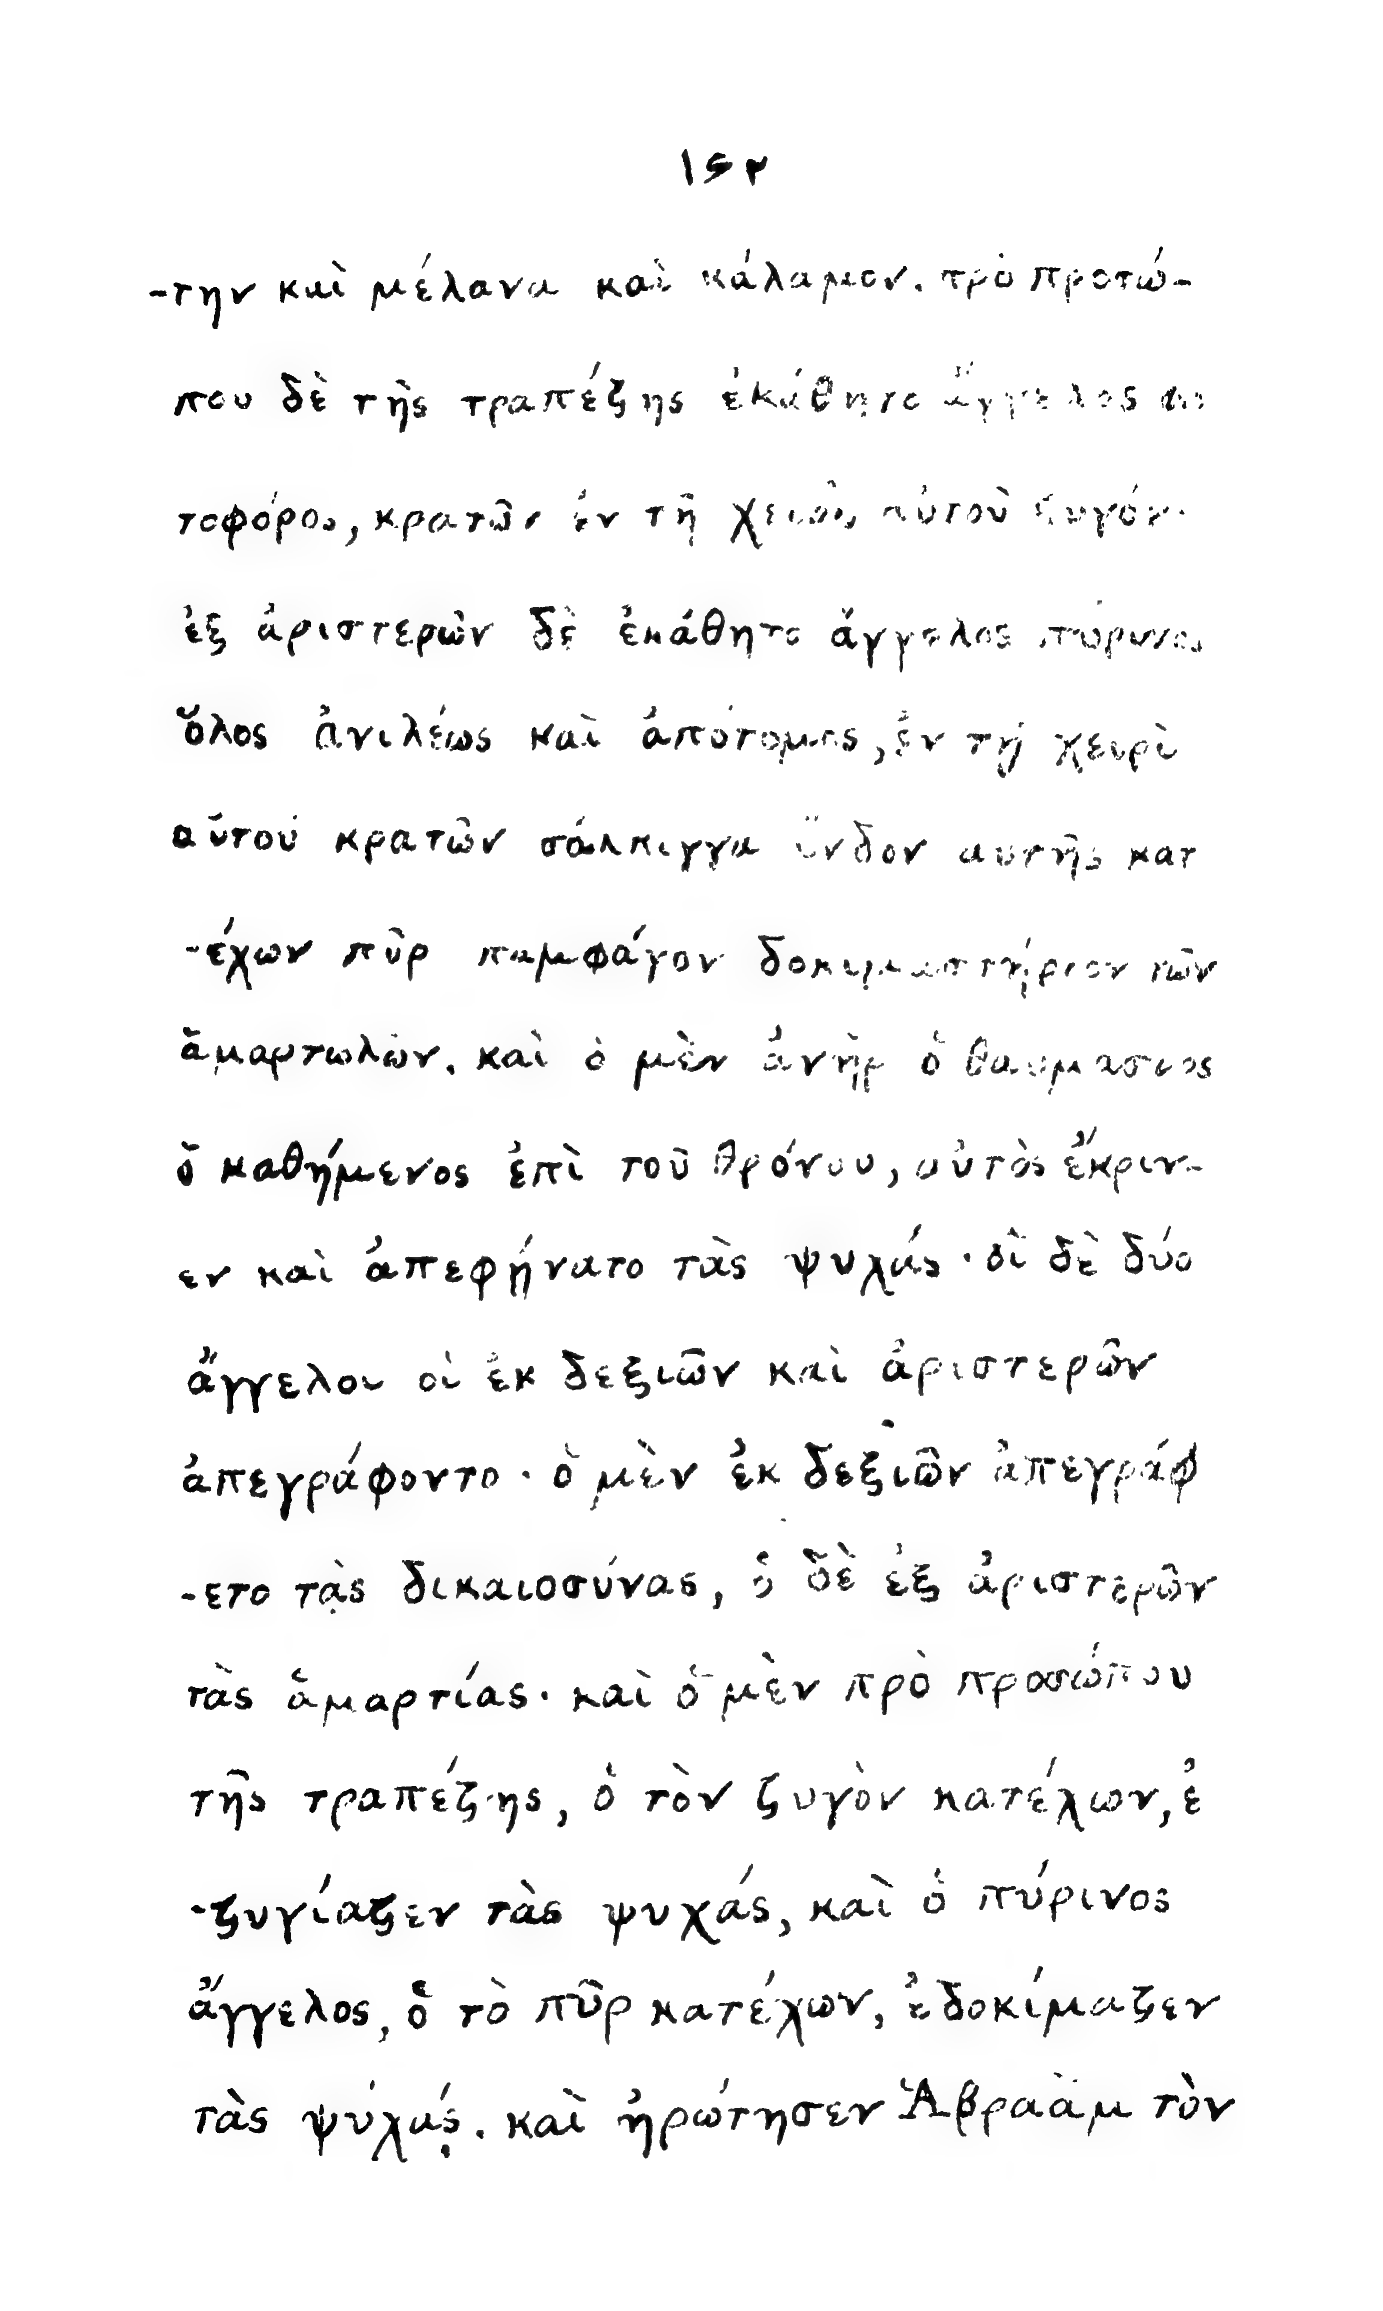 ۱۶۲
-την καὶ μέλανα καὶ κάλαμον. πρὸ προτώ-
που δὲ τῆς τραπέζης ἐκάθητο ἄγγελος φω
τοφόρος, κρατῶν ἐν τῇ χειρὶ αὐτοῦ ζυγόν·
ἐξ ἀριστερῶν δὲ ἐκάθητο ἄγγελος πύρινος
ὅλος ἀνιλέως καὶ ἀπότομος, ἐν τῇ χειρὶ
αὐτοῦ κρατῶν σάλπιγγα ἔνδον αὐτῆς κατ
-έχων πῦρ παμφάγον δοκιμαστήριον τῶν
ἁμαρτωλῶν. καὶ ὁ μὲν ἀνὴρ ὁ θαυμασιος
ὁ καθήμενος ἐπὶ τοῦ θρόνου, αὐτὸς ἔκριν-
εν καὶ ἀπεφήνατο τὰς ψυχάς · οἱ δὲ δύο
ἄγγελοι οἱ ἐκ δεξιῶν καὶ ἀριστερῶν
ἀπεγράφοντο · ὁ μὲν ἐκ δεξιῶν ἀπεγράφ
-ετο τὰς δικαιοσύνας, ὁ δὲ ἐξ ἀριστερῶν
τὰς ἁμαρτίας· καὶ ὁ μὲν πρὸ προσώπου
τῆς τραπέζης, ὁ τὸν ζυγὸν κατέχων, ἐ
-ζυγίαζεν τὰς ψυχάς, καὶ ὁ πύρινος
ἄγγελος, ὁ τὸ πῦρ κατέχων, ἐδοκίμαζεν
τὰς ψυχάς. καὶ ἠρώτησεν Ἀβραὰμ τὸν